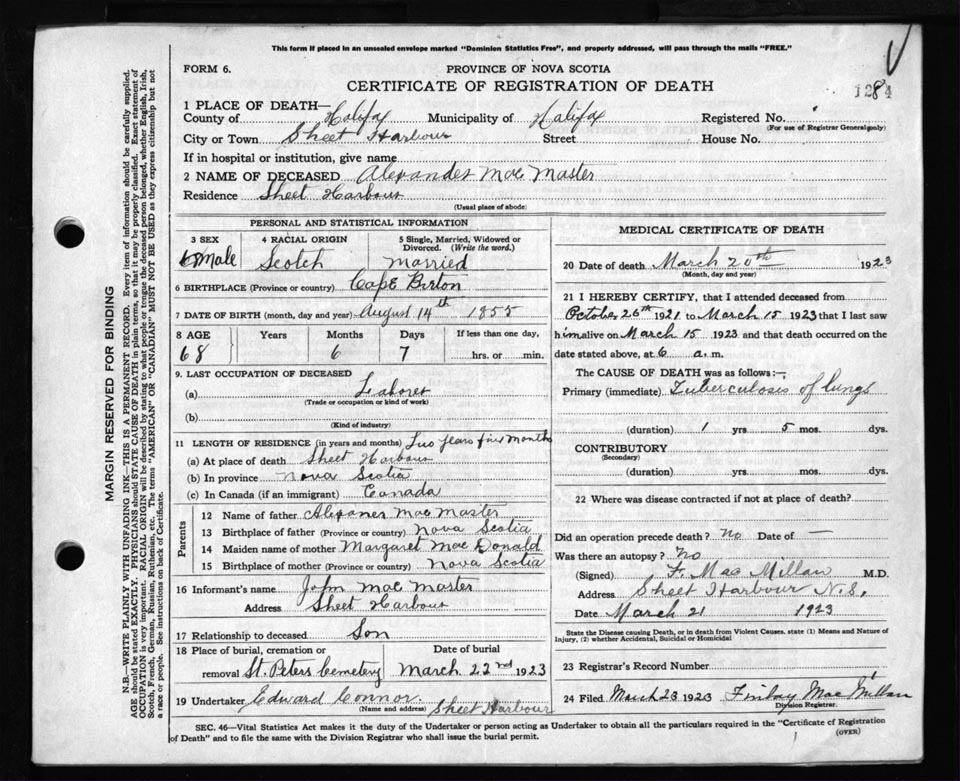 This form if placed in an unsealed envelope marked "Dominion Statistics Free", and properly addressed, will pass through the mails "FREE."
FORM 6.
PROVINCE OF NOVA SCOTIA
CERTIFICATE OF REGISTRATION OF DEATH
1284
1 PLACE OF DEATH—
County of Halifax Municipality of Halifax Registered No.
(For use of Registrar General only)
City or Town Sheet Harbour Street House No.
If in hospital or institution, give name
2 NAME OF DECEASED Alexander Mac Master
Residence Sheet Harbour
(Usual place of abode)
PERSONAL AND STATISTICAL INFORMATION
3 SEX 4 RACIAL ORIGIN 5 Single, Married, Widowed or Divorced. (Write the word.)
Male Scotch Married
6 BIRTHPLACE (Province or country) Cape Birton
7 DATE OF BIRTH (month, day and year) August 14th 1855
8 AGE Years Months Days If less than one day,
68 6 7 hrs. or min.
9. LAST OCCUPATION OF DECEASED
(a) Laborer
(Trade or occupation or kind of work)
(b)
(Kind of industry)
11 LENGTH OF RESIDENCE (in years and months) Two years five months
(a) At place of death Sheet Harbour
(b) In province Nova Scotia
(c) In Canada (if an immigrant) Canada
Parents
12 Name of father Alexaner Mac Master
13 Birthplace of father (Province or country) Nova Scotia
14 Maiden name of mother Margaret Mac Donald
15 Birthplace of mother (Province or country) Nova Scotia
16 Informant's name John Mac Master
Address Sheet Harbour
17 Relationship to deceased Son
18 Place of burial, cremation or removal Date of burial
St. Peters Cemetery March 22nd 1923
19 Undertaker Edward Connor. Sheet Harbour
(Name and address)
MEDICAL CERTIFICATE OF DEATH
20 Date of death March 20th 1923
(Month, day and year)
21 I HEREBY CERTIFY, that I attended deceased from
October 26th 1921 to March 15 1923 that I last saw
him alive on March 15 1923 and that death occurred on the
date stated above, at 6 a. m.
The CAUSE OF DEATH was as follows:—
Primary (immediate) Tuberculosis of lungs
(duration) 1 yrs 5 mos. dys.
CONTRIBUTORY
(Secondary)
(duration) yrs. mos. dys.
22 Where was disease contracted if not at place of death?
Did an operation precede death? No Date of —
Was there an autopsy? No
(Signed) F. Mac Millan M.D.
Address Sheet Harbour N.S.
Date March 21 1923
State the Disease causing Death, or in death from Violent Causes, state (1) Means and Nature of Injury, (2) whether Accidental, Suicidal or Homicidal
23 Registrar's Record Number
24 Filed March 23 1923 Finlay Mac Millan
Division Registrar.
SEC. 46—Vital Statistics Act makes it the duty of the Undertaker or person acting as Undertaker to obtain all the particulars required in the "Certificate of Registration
of Death" and to file the same with the Division Registrar who shall issue the burial permit.
(OVER)
MARGIN RESERVED FOR BINDING
N.B.—WRITE PLAINLY WITH UNFADING INK—THIS IS A PERMANENT RECORD. Every item of information should be carefully supplied.
AGE should be stated EXACTLY. PHYSICIANS should STATE CAUSE OF DEATH in plain terms, so that it may be properly classified. Exact statement of
OCCUPATION is very important. RACIAL ORIGIN will be described by stating to what people or tongue the deceased person belonged, whether English, Irish,
Scotch, French, German, Russian, Ruthenian, etc. The terms "AMERICAN" OR "CANADIAN" MUST NOT BE USED as they express citizenship but not
a race or people. See instructions on back of Certificate.